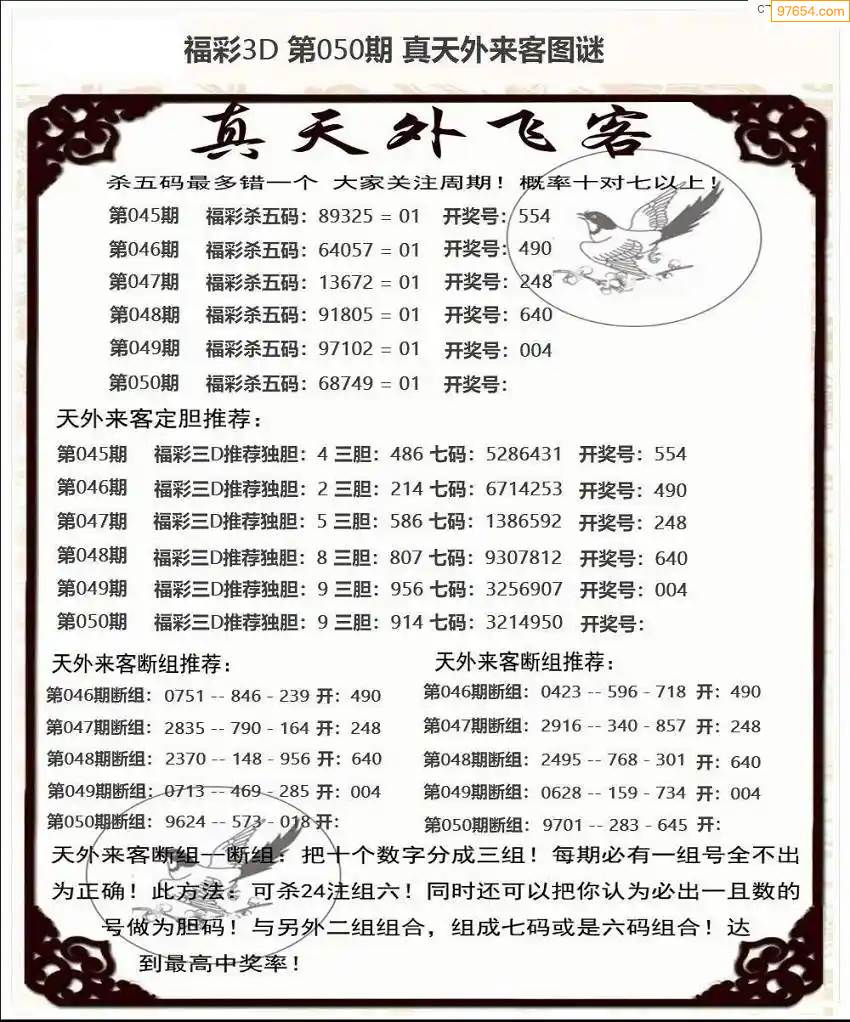 97654.com
福彩3D 第050期 真天外来客图谜
真天外飞客
杀五码最多错一个 大家关注周期！概率十对七以上！
第045期 福彩杀五码：89325 = 01 开奖号：554
第046期 福彩杀五码：64057 = 01 开奖号：490
第047期 福彩杀五码：13672 = 01 开奖号：248
第048期 福彩杀五码：91805 = 01 开奖号：640
第049期 福彩杀五码：97102 = 01 开奖号：004
第050期 福彩杀五码：68749 = 01 开奖号：
天外来客定胆推荐：
第045期 福彩三D推荐独胆：4 三胆：486 七码：5286431 开奖号：554
第046期 福彩三D推荐独胆：2 三胆：214 七码：6714253 开奖号：490
第047期 福彩三D推荐独胆：5 三胆：586 七码：1386592 开奖号：248
第048期 福彩三D推荐独胆：8 三胆：807 七码：9307812 开奖号：640
第049期 福彩三D推荐独胆：9 三胆：956 七码：3256907 开奖号：004
第050期 福彩三D推荐独胆：9 三胆：914 七码：3214950 开奖号：
天外来客断组推荐：
第046期断组：0751 -- 846 - 239 开：490
第047期断组：2835 -- 790 - 164 开：248
第048期断组：2370 -- 148 - 956 开：640
第049期断组：0713 -- 469 - 285 开：004
第050期断组：9624 -- 573 - 018 开：
天外来客断组推荐：
第046期断组：0423 -- 596 - 718 开：490
第047期断组：2916 -- 340 - 857 开：248
第048期断组：2495 -- 768 - 301 开：640
第049期断组：0628 -- 159 - 734 开：004
第050期断组：9701 -- 283 - 645 开：
天外来客断组一断组：把十个数字分成三组！每期必有一组号全不出
为正确！此方法：可杀24注组六！同时还可以把你认为必出一且数的
号做为胆码！与另外二组组合，组成七码或是六码组合！达
到最高中奖率！